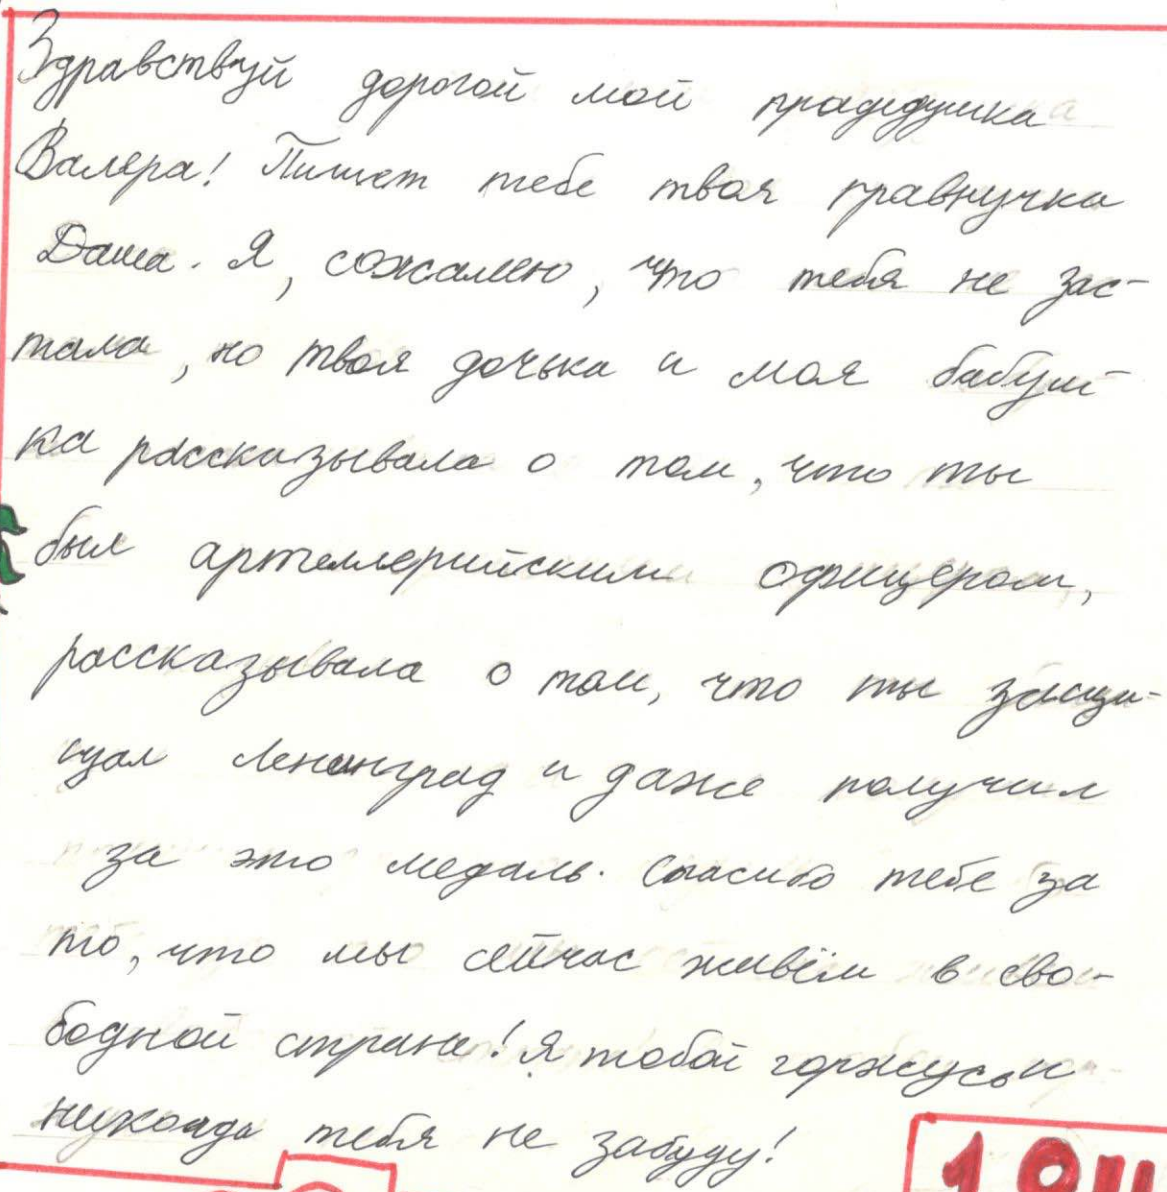 Здравствуй дорогой мой прадедушка
Валера! Пишет тебе твоя правнучка
Даша. Я, сожалею, что тебя не зас-
тала, но твоя дочька и моя бабуш-
ка рассказывала о том, что ты
был артеллерийским офицером,
рассказывала о том, что ты защи-
щал Ленинград и даже получил
за это медаль. Спасибо тебе за
то, что мы сейчас живём в сво-
бодной стране! Я тобой горжусь и
никогда тебя не забуду!